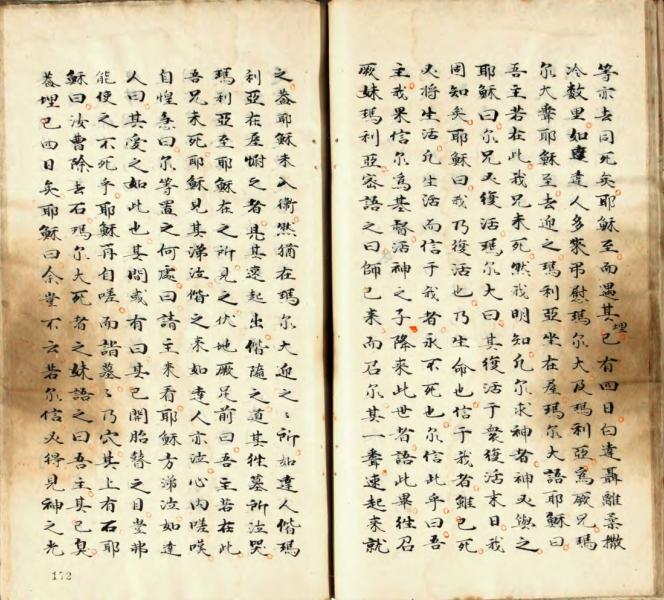 等亦去同死矣耶穌至而遇其埋已有四日白達聶離柔撒
冷数里如達達人多來弔慰瑪尔大及瑪利亞爲厥兄瑪
尔大聞耶穌至去迎之瑪利亞坐在屋瑪尔大語耶穌曰
吾主若在此我兄未死然我明知凢尔求神者神必與之
耶穌曰尔兄必復活瑪尔大曰其復活于衆復活末日我
固知矣耶穌曰我乃復活也乃生命也信于我者雖已死
必将生活凢生活而信于我者永不死也尔信此乎曰吾
主我果信尔爲基督活神之子降來此世者語此畢徃召
厥妹瑪利亞宻語之曰師已来而召尔其一聞速起来就
之葢耶穌未入衛然猶在瑪尔大迎之〻所如達人偕瑪
利亞在屋慰之者見其速起出偕随之道其徃墓所泣哭
瑪利亞至耶穌在之所見之伏地厥足前曰吾主若在此
吾兄未死耶穌見其涕泣偕之来如達人亦泣心内嗟嘆
自惶曰尔等置之何處曰請主来看耶穌方涕泣如達
人曰其愛之如此也其間或有曰其已開胎瞽之目豈弗
能使之不死乎耶穌再自嗟而詣墓〻乃穴其上有石耶
穌曰汝曹除去石瑪尔大死者之妹語之曰吾主其已臭
葢埋已四日矣耶穌曰余豈不云若尔信必得見神之光
172